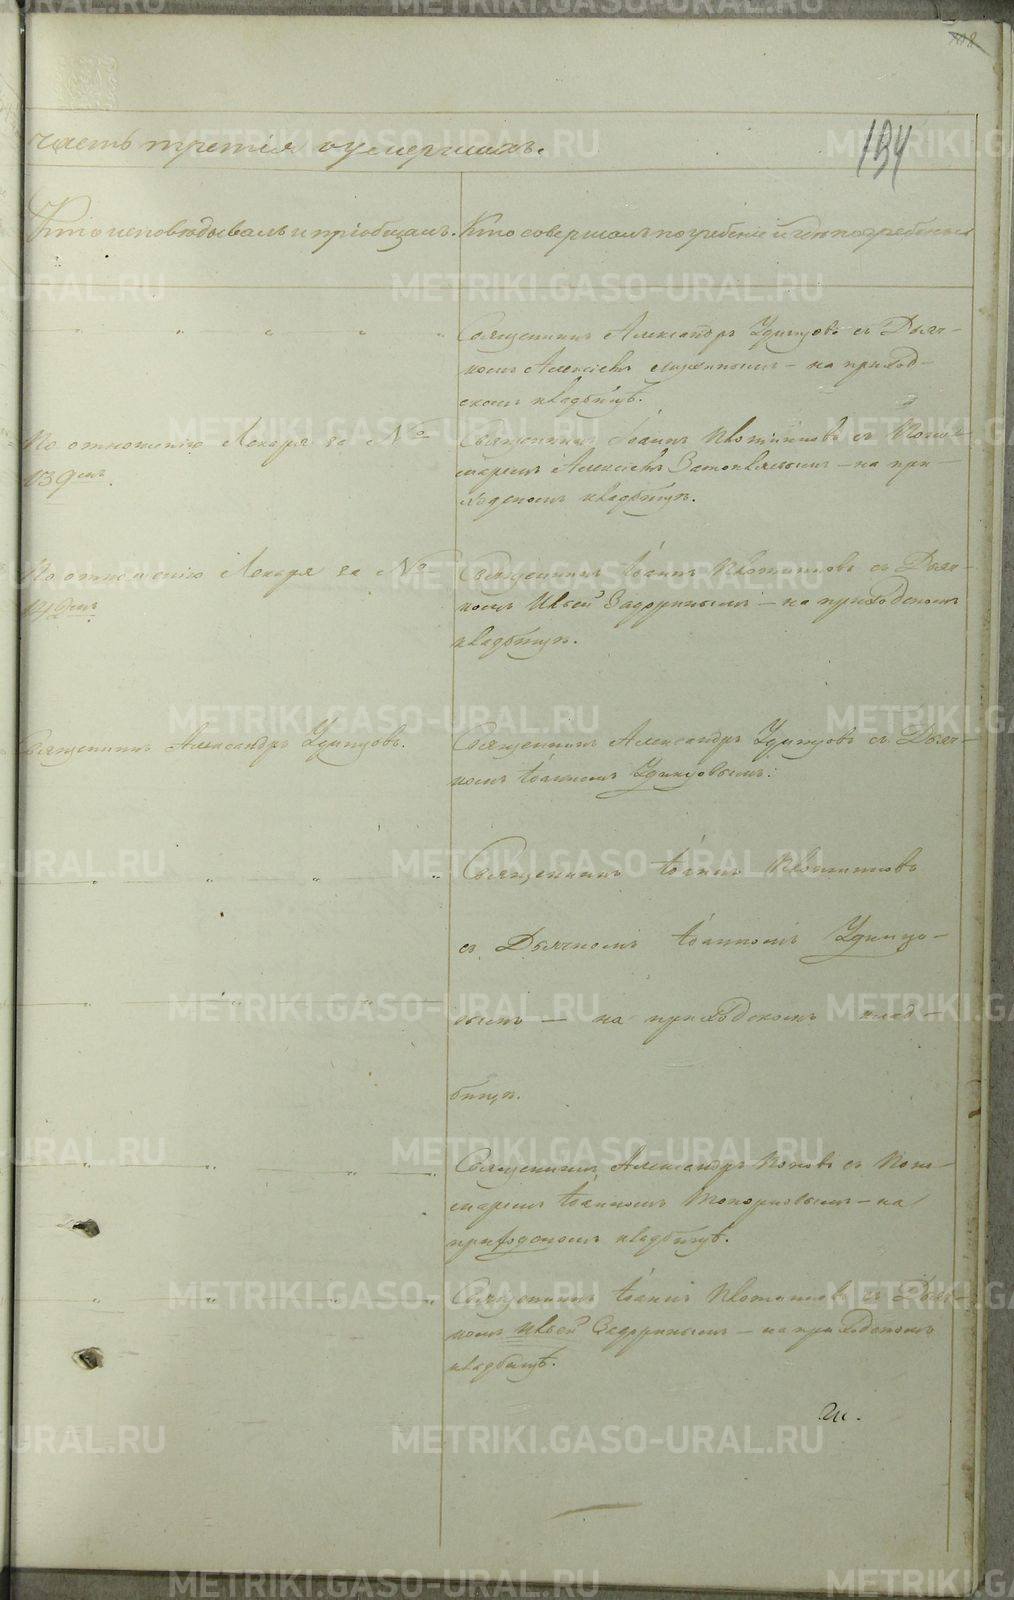 134
часть третія о умершихъ.
Кто исповѣдывалъ и пріобщалъ.
Кто совершалъ погребеніе и гдѣ погребены
Священникъ Александръ Удинцовъ съ Дьяч-
комъ Алексіемъ на приход-
скомъ кладбищѣ.
По отношенію Лекаря за №
139
Священникъ Іоаннъ съ Поно-
маремъ Алексіемъ — на при-
ходскомъ кладбищѣ.
По отношенію Лекаря за №
Священникъ Іоаннъ съ Дьяч-
комъ — на приходскомъ
кладбищѣ.
Священникъ Александръ Удинцовъ.
Священникъ Александръ Удинцовъ съ Дьяч-
комъ Іоанномъ Удинцовымъ.
Священникъ Іоаннъ
съ Дьячкомъ Іоанномъ Удинцо-
вымъ — на приходскомъ клад-
бищѣ.
Священникъ Александръ Поповъ съ Поно-
маремъ Іоанномъ Топорковымъ — на
приходскомъ кладбищѣ.
Священникъ Іоаннъ съ Дьяч-
комъ — на приходскомъ
кладбищѣ.
METRIKI.GASO-URAL.RU